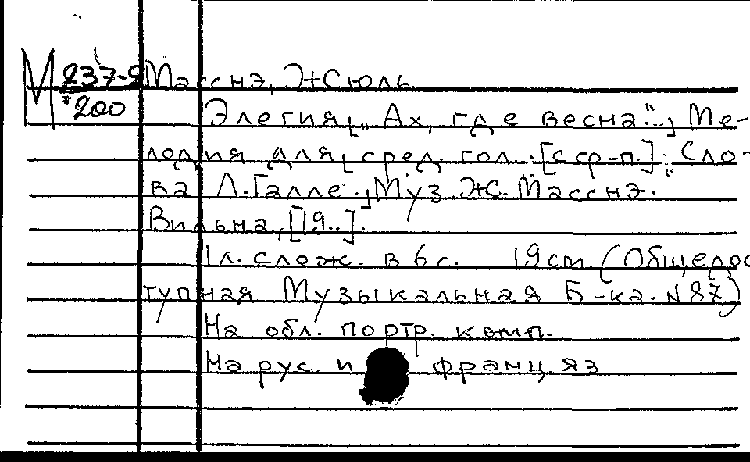 М 237-9 Масснэ, Жюль
200 Элегия „Ах, где весна", Ме-
лодия для сред. гол. [с ф-п.] Сло-
ва Л. Галле. Муз. Ж. Масснэ.
Вильна, [19..].
1 л. слож. в 6 с. 19 см (Общедос
тупная Музыкальная Б-ка. № 87)
На обл. портр. комп.
На рус. и франц. яз